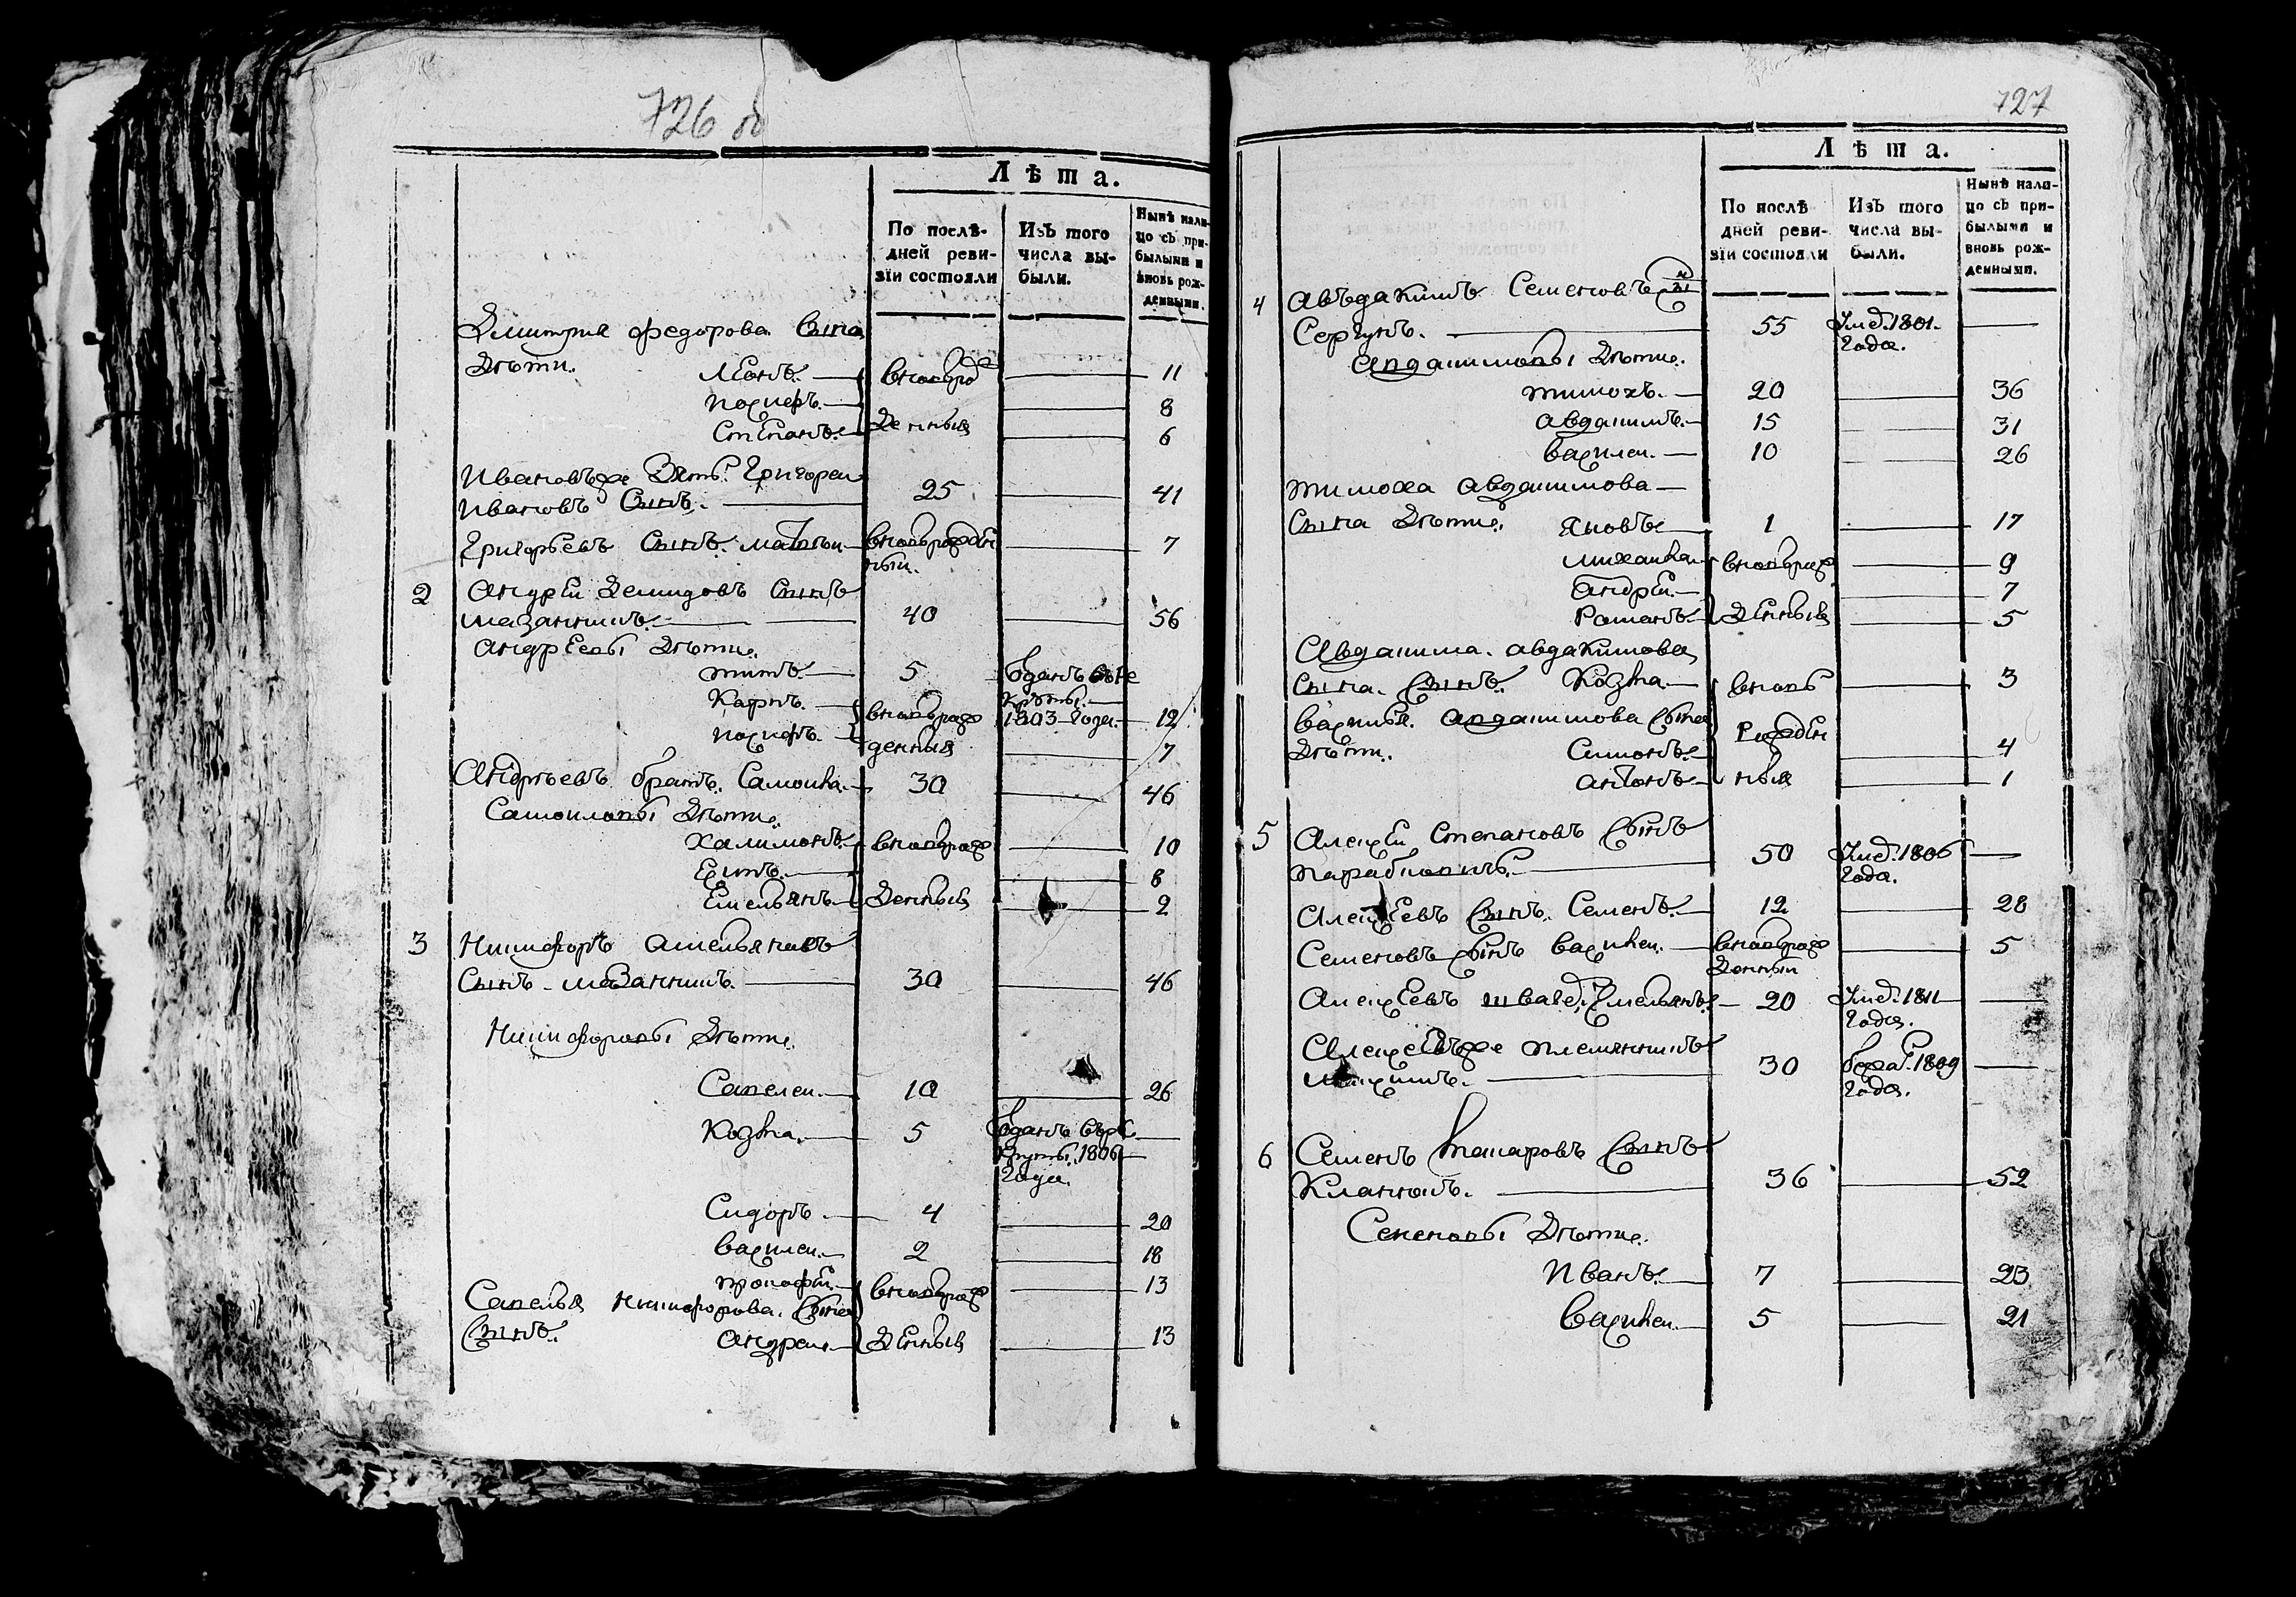 726 об
Лѣта.
По послѣ-
дней реви-
зіи состояли
Изъ того
числа вы-
были.
Нынѣ нали-
цо съ при-
былыми и
вновь рож-
денными.
Дмитрия федорова Сына
Дѣти. Леонъ. вновърож 11
8
Степанъ. денныя 6
Ивановъже Зять Григореи
Ивановъ Сынъ. 25 41
Григорьевъ Сынъ. вновьрожден 7
ныи.
2 Андреи Демидовъ Сынъ
Мазанникъ. 40 56
Андреевы Дѣти.
титъ. 5 Отданъ врe
Карпъ. вноворож круты 1803 Года. 12
денныя 7
Андрѣевъ братъ. Самоила. 30 46
Самоиловы Дѣти.
Халимонъ. вноворож 10
8
Емельянъ. Денныя 2
3 Никифоръ Амельяновъ
Сынъ Мазанникъ. 30 46
Никифоровы Дѣти.
Савелеи. 10 26
Козма. 5 Отданъ врe
круты. 1806
Года.
Сидоръ. 4 20
василеи. 2 18
прокофеи. вноворож 13
Савелья Никифорова. Сына
Сынъ. Андреи. Денныя 13
727
Лѣта.
По послѣ
дней реви-
зіи состояли
Изъ того
числа вы-
были.
Нынѣ нали-
цо съ при-
былыми и
вновь рож-
денными.
4 Авъдакимъ Семеновъ
Сергунъ. 55 Умер. 1801.
Года.
Авдакимовы Дѣти.
тимохъ. 20 36
Авдакимъ. 15 31
василеи. 10 26
тимоха Авдакимова
Сына Дѣти. Яковъ 1 17
михаила вноворож 9
Андреи. 7
Романъ Денныя 5
Авдакима. авдакимова
Сына. Сынъ. Козма. вновь 3
василья. Авдакимова Сына
Рожден
Дѣти. Симонъ. 4
Антонъ ныя 1
5 Алексеи Степановъ Сынъ
50 Умер. 1806
Года.
Алексеевъ Сынъ. Семенъ. 12 28
Семеновъ Сынъ василеи. вноворож 5
Денныи
Алексеевъ Емельянъ. 20 Умер. 1811
Года.
Алексеевъже племянникъ
30 бежал. 1809
Года.
6 Семенъ Макаровъ Сынъ
36 52
Семеновы Дѣти.
Иванъ. 7 23
василеи. 5 21